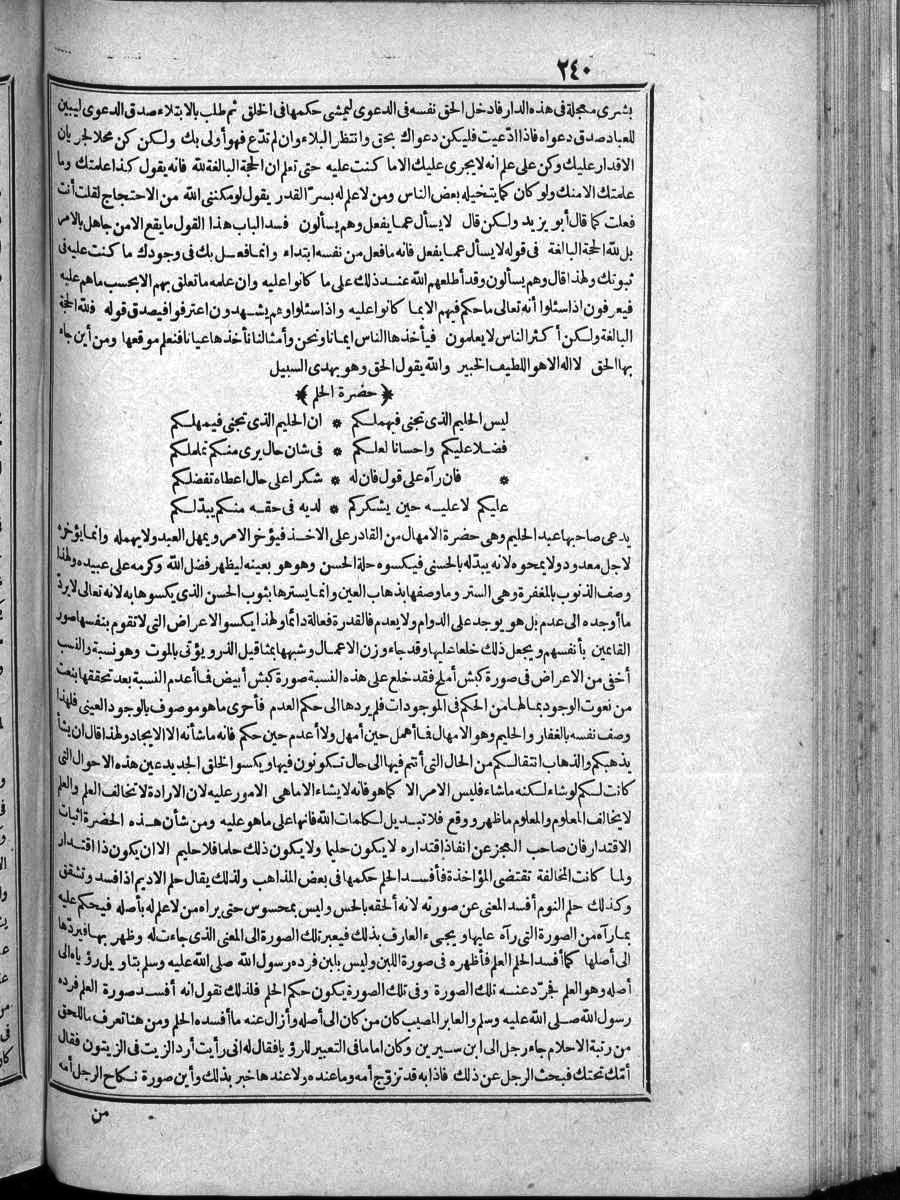 ٢٤٠
بشرى معجلة فى هذه الدار فادخل الحق نفسه فى الدعوى ليمشى حكمها فى الخلق ثم طلب بالابتلاء صدق الدعوى ليبين
للعباد صدق دعواه فاذا ادّعيت فليكن دعواك بحق وانتظر البلاء وان لم تدّع فهو أولى بك ولكن كن محلا لجريان
الاقدار عليك وكن على علم انه لا يجرى عليك الا ما كنت عليه حتى تعلم ان الحجة البالغة لله فانه يقول كذا علمتك وما
علمتك الا منك ولو كان كما يتخيله بعض الناس ومن لا علم له بسرّ القدر يقول لو مكننى الله من الاحتجاج لقلت أنت
فعلت كما قال أبو يزيد ولكن قال لا يسأل عما يفعل وهم يسألون فسد الباب هذا القول ما يقع الا من جاهل بالامر
بل لله الحجة البالغة فى قوله لا يسأل عما يفعل فانه ما فعل من نفسه ابتداء وانما فعل بك فى وجودك ما كنت عليه فى
ثبوتك ولهذا قال وهم يسألون وقد أطلعهم الله عند ذلك على ما كانوا عليه وان علمه ما تعلق بهم الا بحسب ما هم عليه
فيعرفون اذا سئلوا أنه تعالى ما حكم فيهم الا بما كانوا عليه واذا سئلوا وهم يشهدون اعترفوا فيصدق قوله فلله الحجة
البالغة ولكن أكثر الناس لا يعلمون فيأخذها الناس ايمانا ونحن وأمثالنا نأخذها عيانا فنعلم موقعها ومن أين جاء
بها الحق لا اله الا هو اللطيف الخبير والله يقول الحق وهو يهدى السبيل
﴿ حضرة الحلم ﴾
ليس الحليم الذى تجنى فيهملكم * ان الحليم الذى تجنى فيمهلكم
فضلا عليكم واحسانا لعلكم * فى شان حال يرى منكم تململكم
* فان رآه على قول فان له * شكرا على حال اعطاه تفضلكم
عليكم لا عليه حين يشكركم * لديه فى حقه منكم يبدّلكم
يدعى صاحبها عبد الحليم وهى حضرة الامهال من القادر على الاخذ فيؤخر الامر ويمهل العبد ولا يهمله وانما يؤخره
لاجل معدود ولا يمحوه لانه يبدّله بالحسنى فيكسوه حلة الحسن وهو هو بعينه ليظهر فضل الله وكرمه على عبيده ولهذا
وصف الذنوب بالمغفرة وهى الستر وما وصفها بذهاب العين وانما يسترها بثوب الحسن الذى يكسوها به لانه تعالى لا يردّ
ما أوجده الى عدم بل هو يوجد على الدوام ولا يعدم فالقدرة فعالة دائما ولهذا يكسو الاعراض التى لا تقوم بنفسها صور
القائمين بأنفسهم ويجعل ذلك خلعا عليها وقد جاء وزن الاعمال وشبهها بمثاقيل الذر ويؤتى بالموت وهو نسبة والنسب
أخفى من الاعراض فى صورة كبش أملح فقد خلع على هذه النسبة صورة كبش أبيض فما أعدم النسبة بعد تحققها بنعت
من نعوت الوجود بمالها من الحكم فى الموجودات فلم يردها الى حكم العدم فأحرى ما هو موصوف بالوجود العينى فلهذا
وصف نفسه بالغفار والحليم وهو الامهال فما أهمل حين أمهل ولا أعدم حين حكم فانه ما شأنه الا الايجاد ولهذا قال ان يشأ
يذهبكم والذهاب انتقالكم من الحال التى أنتم فيها الى حال تكونون فيها ويكسو الخلق الجديد عين هذه الاحوال التى
كانت لكم لو شاء لكنه ما شاء فليس الامر الا كما هو فانه لا يشاء الا ما هى الامور عليه لان الارادة لا تخالف العلم والعلم
لا يخالف المعلوم والمعلوم ما ظهر ووقع فلا تبديل لكلمات الله فانها على ما هو عليه ومن شأن هذه الحضرة اثبات
الاقتدار فان صاحب العجز عن انفاذ اقتداره لا يكون حليما ولا يكون ذلك حلما فلا حليم الا ان يكون ذا اقتدار
ولما كانت المخالفة تقتضى المؤاخذة فأفسد الحلم حكمها فى بعض المذاهب ولذلك يقال حلم الاديم اذا فسد وتشقق
وكذلك حلم النوم أفسد المعنى عن صورته لانه ألحقه بالحس وليس بمحسوس حتى يراه من لا علم له بأصله فيحكم عليه
بما رآه من الصورة التى رآه عليها ويجىء العارف بذلك فيعبر تلك الصورة الى المعنى الذى جاءت له وظهر بها فيردّها
الى أصلها كما أفسد الحلم العلم فأظهره فى صورة اللبن وليس بلبن فرده رسول الله صلى الله عليه وسلم بتاويل رؤياه الى
أصله وهو العلم فجرّد عنه تلك الصورة وفى تلك الصورة يكون حكم الحلم فلذلك نقول انه أفسد صورة العلم فرده
رسول الله صلى الله عليه وسلم والعابر المصيب كان من كان الى أصله وأزال عنه ما أفسده الحلم ومن هنا تعرف ما للحق
من رتبة الاحلام جاء رجل الى ابن سيرين وكان اماما فى التعبير للرؤيا فقال له انى رأيت أرد الزيت فى الزيتون فقال
أمّك تحتك فبحث الرجل عن ذلك فاذا به قد تزوّج أمه وما عنده ولا عندها خبر بذلك وأين صورة نكاح الرجل أمه
من